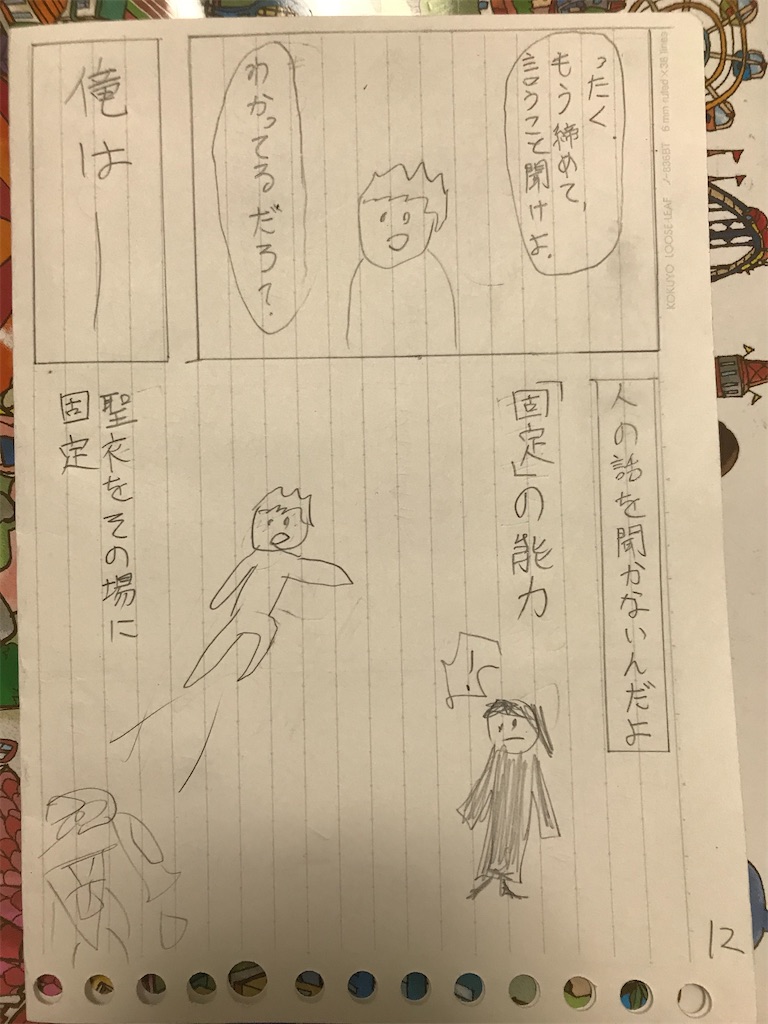 ったく.
もう締めて、
言うこと聞けよ.
わかってるだろ?.
俺は―
人の話を聞かないんだよ
「固定」の能力
!
聖衣をその場に
固定
12
KOKUYO LOOSE-LEAF ノ-836BT 6 mm ruled×36 lines